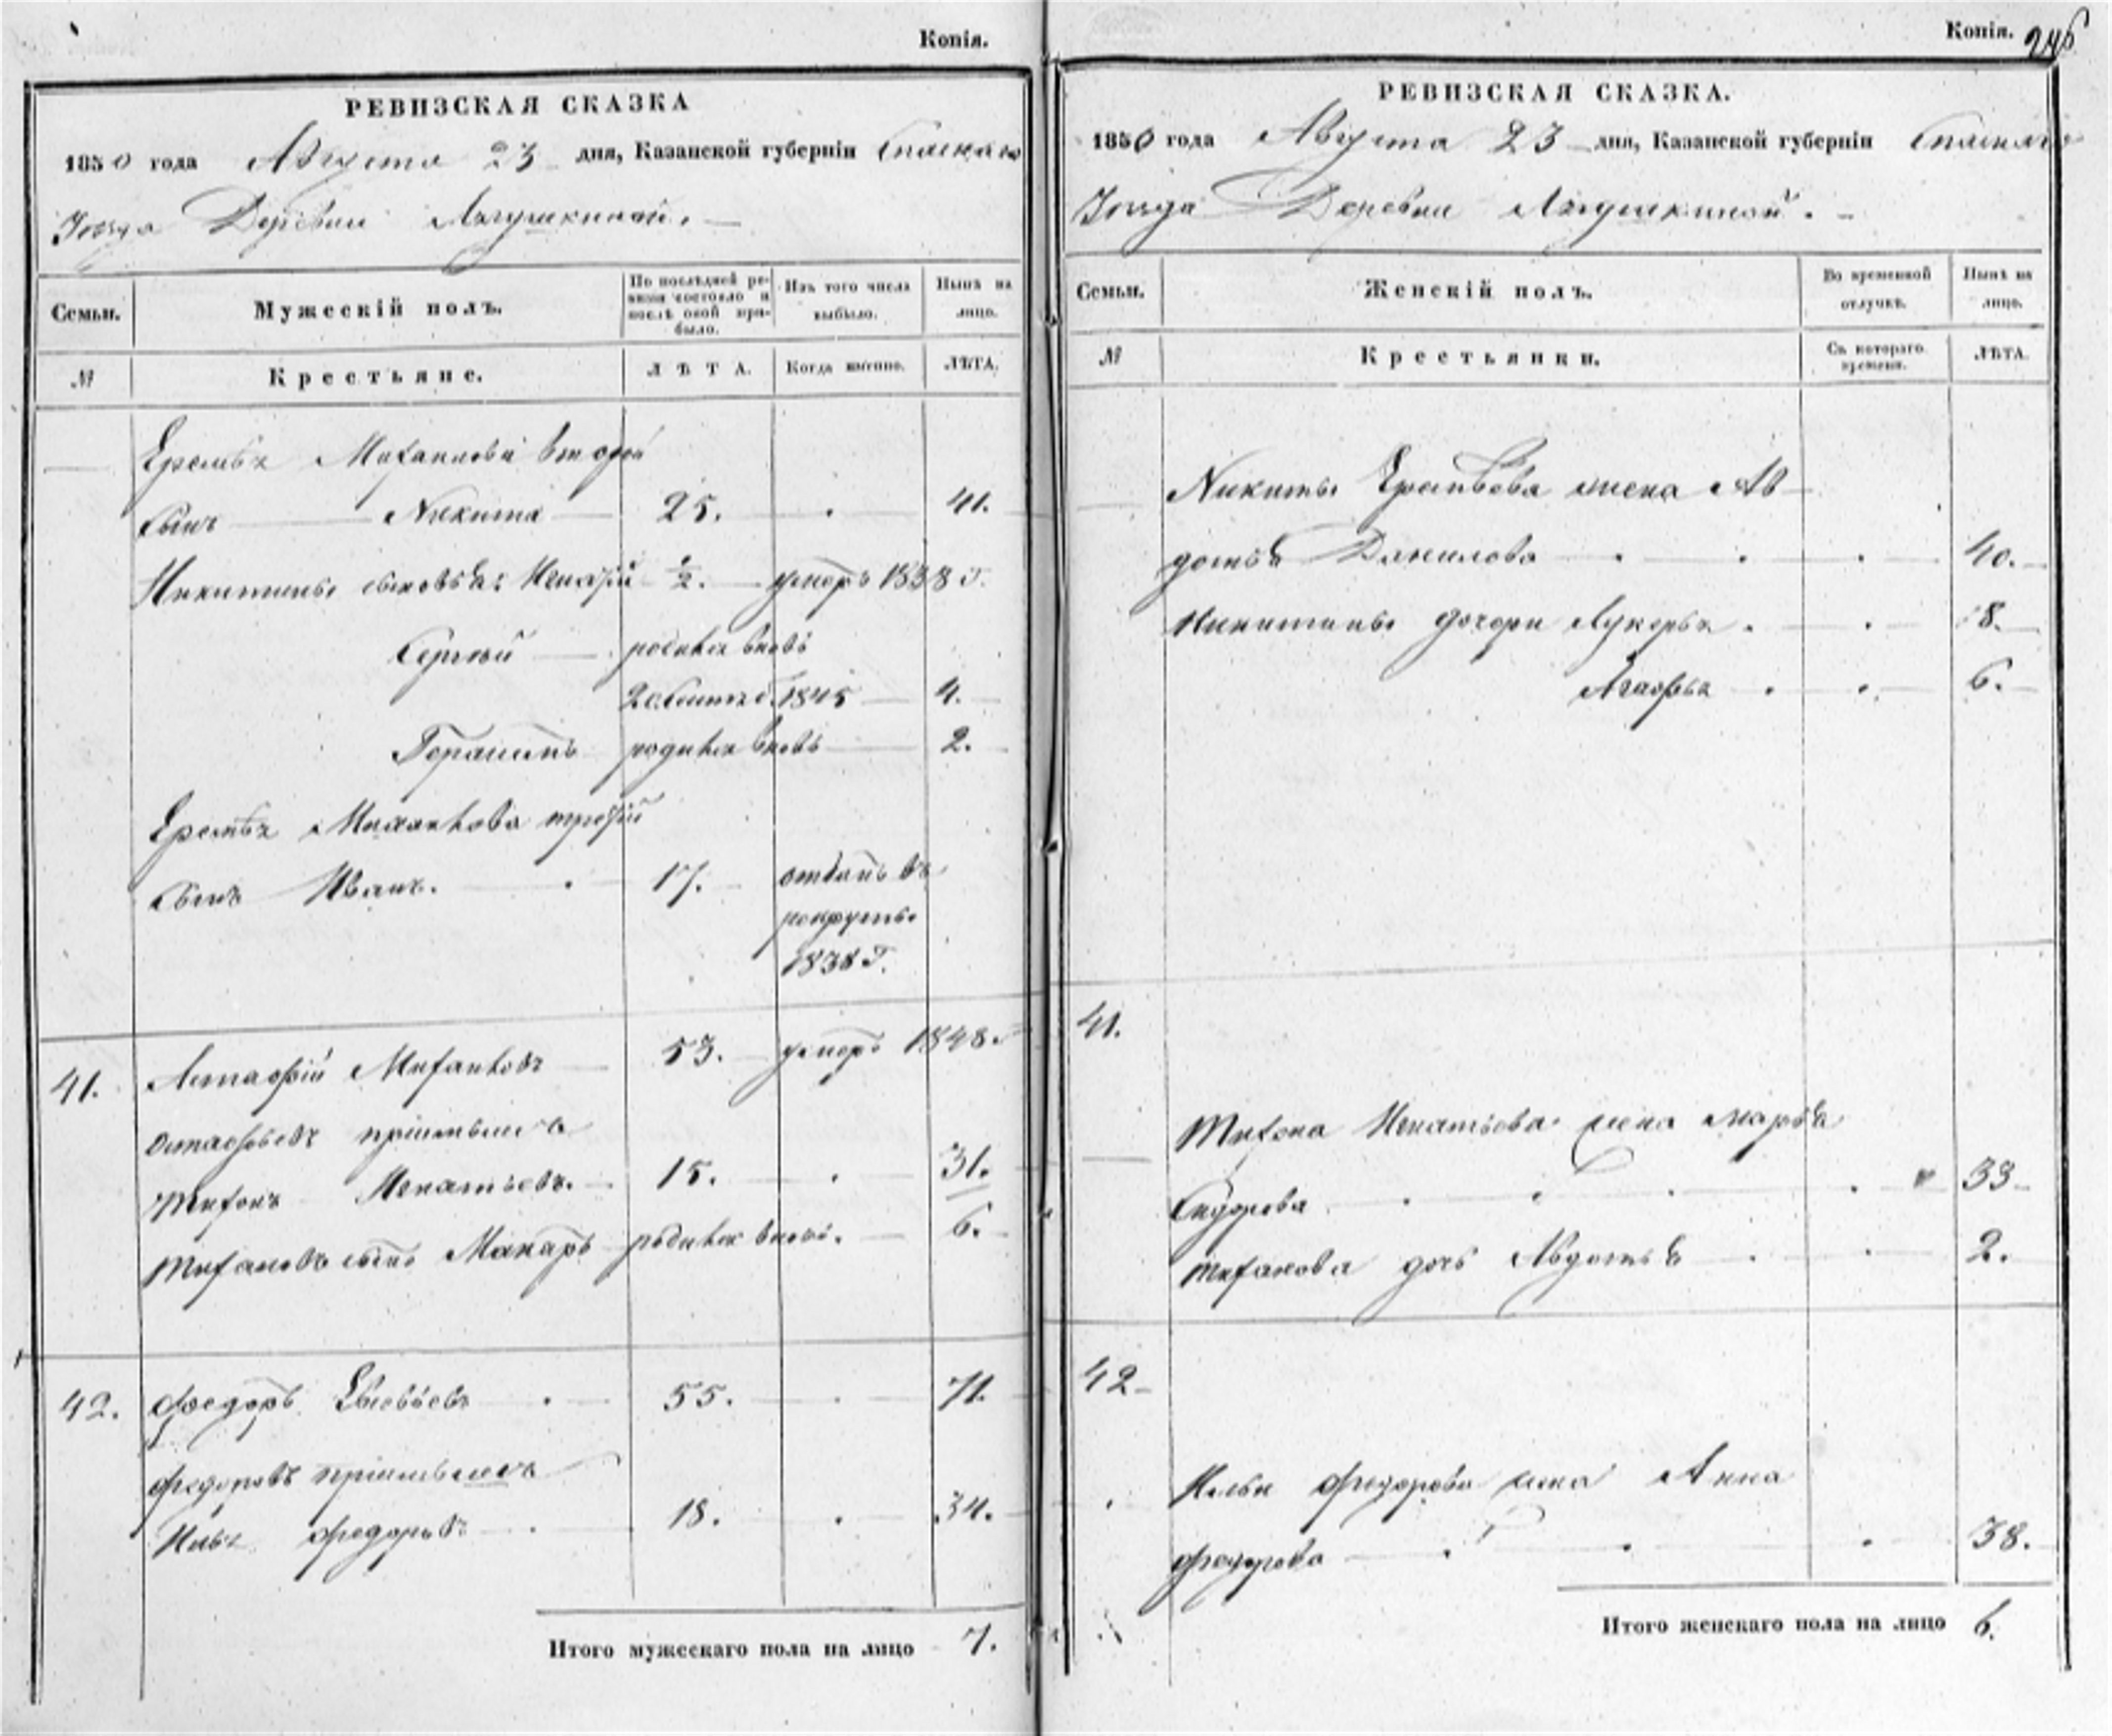 Копія.
РЕВИЗСКАЯ СКАЗКА
1850 года Августа 23 дня, Казанской губерніи Спаскаго
Уезда Деревни Лягушкиной.
Семьи.
Мужескій полъ.
По послѣдней ревизіи состояло и послѣ оной прибыло.
Изъ того числа выбыло.
Нынѣ на лицо.
№
Крестьяне.
ЛѢТА.
Когда именно.
ЛѢТА.
Еремѣя Михаилова второй
сынъ Никита 25. 41.
Никитины сыновья: Игнатій 1/2. умеръ 1838 г.
Сергѣй родился вновь
1845 4.
Герасимъ родился вновь 2.
Еремѣя Михайлова третій
сынъ Иванъ. 17. отданъ въ
рекруты
1838 г.
41. Астафій Михайловъ 53. умеръ 1848.
Остафьевъ пріемышъ
Тифонъ Игнатьевъ. 15. 31.
Тифановъ сынъ Макаръ родился вновь. 6.
42. Федоръ Евсевьевъ 55. 71.
Федоровъ пріемышъ
Илья Федоровъ 18. 34.
Итого мужескаго пола на лицо 7.
Копія. 246
РЕВИЗСКАЯ СКАЗКА.
1850 года Августа 23 дня, Казанской губерніи Спаскаго
Уезда Деревни Лягушкиной.
Семьи.
Женскій полъ.
Во временной отлучкѣ.
Нынѣ на лицо.
№
Крестьянки.
Съ котораго времени.
ЛѢТА.
Никиты Еремѣева жена Ав
дотья Данилова 40.
Никитины дочери Лукерья 8.
Агафья 6.
41.
Тифона Игнатьева жена Марья
Сидорова 33
Тифанова дочь Авдотья 2.
42
Ильи Федорова жена Анна
Федорова 38.
Итого женскаго пола на лицо 6.